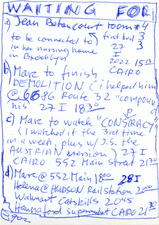 WAITING FOR
a) Jean Betancourt room #4
to be connected to first bail 3
in her nursing home 27 3
in Brooklyn I
2022 15
CAIRO
b) Marc to finish
DEMOLITION (I helped him)
@ 6686 Route 32 "compound"
his 27 I 18
c) Marc to watch "CONSPIRACY"
(I watched it the 3rd time
in a week, plus W.S. the
AUSTRIAN version) 27 I
CAIRO 552 Main Street 21
d) Marc @ 552 Main 18 28 I
Helena @ HUDSON Rail station 20
Walmart Catskill 2045
Hannaford supermarket CAIRO 21